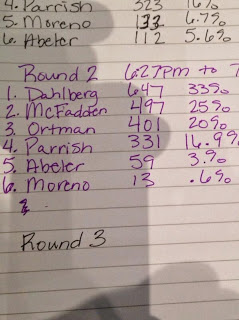 4. Parrish 323 16%
5. Moreno 133 6.7%
6. Abeler 112 5.6%
Round 2 6:27pm to
1. Dahlberg 647 33%
2. McFadden 497 25%
3. Ortman 401 20%
4. Parrish 331 16.9%
5. Abeler 59 3.%
6. Moreno 13 .6%
Round 3